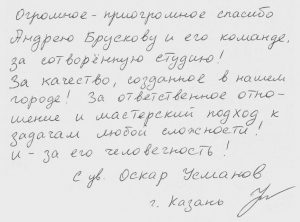 Огромное - приогромное спасибо
Андрею Брускову и его команде,
за сотворённую студию!
За качество, созданное в нашем
городе! За ответственное отно-
шение и мастерский подход к
задачам любой сложности!
и - за его человечность!
С ув. Оскар Усманов
г. Казань